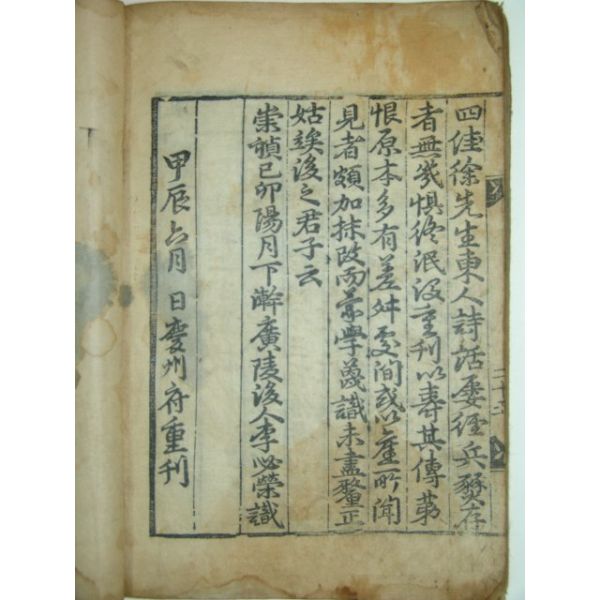 四佳徐先生東人詩話屢經兵燹存
者無幾惧終泯没重刊以壽其傳苐
恨原本多有差舛處間或以所聞
見者頗加抹改而蒙學蔑識未盡釐正
姑竢後之君子云
崇禎己卯陽月下澣廣陵後人李必榮識
甲辰六月 日慶州府重刊